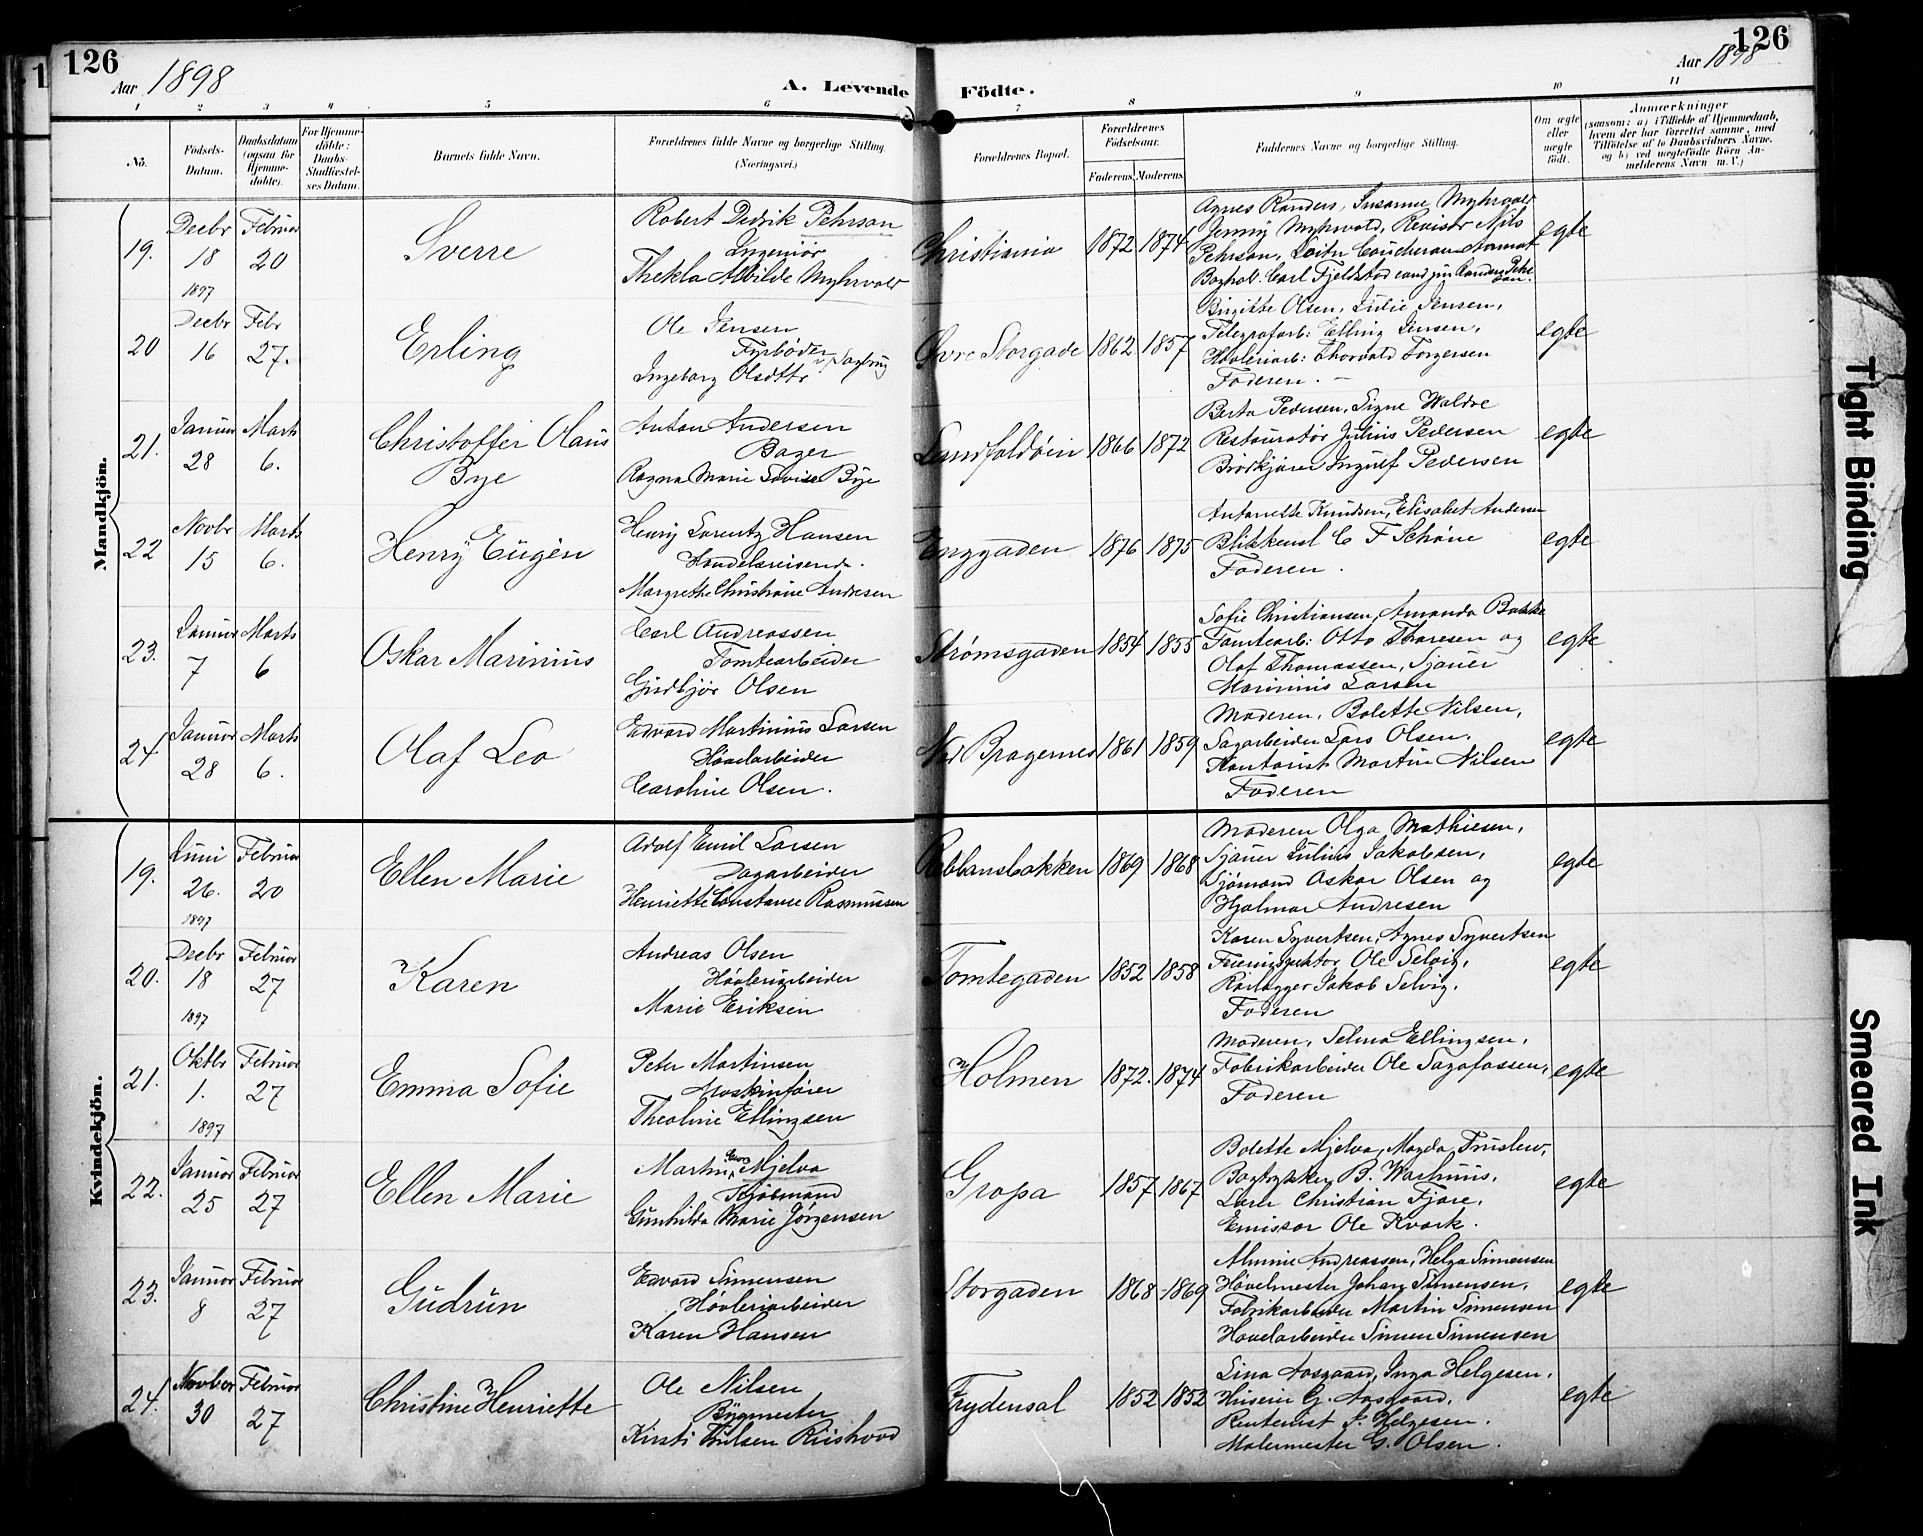 126
Aar 1898
A. Levende
Födte.
126
Aar 1898
1 2 3 4 5 6 7 8 9 10 11
No.
Födsels-
Datum.
Daabsdatum
(ogsaa for
Hjemme-
døbte).
For Hjemme-
döbte:
Daabs-
Stadfæstel-
ses Datum.
Barnets fulde Navn.
Forældrenes fulde Navne og borgerlige Stilling
(Næringsvei.)
Forældrenes Bopæl.
Forældrenes
Födselsaar.
Faderens. Moderens.
Faddernes Navne og borgerlige Stilling.
Om ægte
eller
uægte
født.
Anmærkninger
(saasom: a) i Tilfælde af Hjemmedaab,
hvem der har forrettet samme, med
Tilföielse af to Daabsvidners Navne,
og b) ved uægtefödte Börn An-
melderens Navn m. V.)
Mandkjön.
19.
Decbr
18
1897
Februar
20
Sverre
Robert Dedrik Pehrson
Ingeniör
Thekla Alvilde Myhrvold
Christiania
1872 1874
Agnes Randers, Susanne Myhrvold
Jenny Myhrvold, Revisor Nils
Pehrson,
Boghol. Carl Fjeldstad cand jur
egte
20
Decbr
16
Febr
27.
Erling
Ole Jensen
Fyrbøder v. Sagbrug
Ingeborg Olsdttr
Øvre Storgade
1862 1857
Birgitte Olsen, Julie Jensen,
Telegrafarb: Elling Jensen,
Høvleriarb: Thorvald Torgersen
Faderen. —
egte
21.
Januar
28
Marts
6.
Christoffer Olaus
Bye
Anton Andersen
Bager
Ragna Marie Lovise Bye
Landfaldøin
1866 1872
Berta Pedersen, Signe Waldre
Restauratør Julius Pedersen
Brødkjører Ingulf Pedersen
egte
22
Novbr
15
Marts
6.
Henry Eugèn
Henry Lorentz Hansen
Handelsreisende.
Margrethe Christiane Andresen
Enggaden
1876 1875
Antonette Knudsen, Elisabet Andersen
Blikkensl C F Schøne
Faderen.
egte
23.
Januar
7
Marts
6
Oskar Marinius
Carl Andreassen
Tomtearbeider
Gudbjør Olsen
Strømsgaden
1854 1855
Sofie Christiansen, Amanda Bakke
Tomtearb: Otto Thoresen og
Olaf Thomassen, Sjauer
Marinius Larsen
egte
24
Januar
28
Marts
6.
Olaf Leo
Edvard Martinius Larsen
Høvelarbeider
Caroline Olsen.
Ned Bragernes
1861 1859
Moderen, Bolette Nilsen,
Sagarbeider Lars Olsen.
Kontorist Martin Nilsen
Faderen
egte
Kvindekjön.
19.
Juni
26.
1897
Februar
20
Ellen Marie
Adolf Emil Larsen
Dagarbeider
Henriette Constance Rasmussen
1869 1868
Moderen Olga Mathiesen,
Sjauer Julius Jakobsen,
Sjømand Oskar Olsen og
Hjalmar Andresen
egte
20.
Decbr
18
1897
Februar
27
Karen
Andreas Olsen
Høvleriarbeider
Marie Eriksen
Tomtegaden
1852 1858
Karen Syvertsen, Agnes Syvertsen
Feierinspektør Ole Selvig,
Rørlægger Jakob Selvig.
Faderen
egte
21.
Oktbr
1.
1897
Februar
27
Emma Sofie
Peter Martinsen
Maskinfører
Theoline Ellingsen
Holmen
1872. 1874
Moderen, Selma Ellingsen,
Fabrikarbeider Ole Sagafossen,
Faderen
egte
22.
Januar
25
Februar
27
Ellen Marie
Martin Mjelva
Kjøbmand
Gunhilda Marie Jørgensen
Gropa
1857 1867
Bolette Mjelva, Magda Truslew,
Bogtrykker B. Warhuus,
Lærer Christian Fjære,
Emissær Ole Kvark.
egte
23.
Januar
8
Februar
27
Gudrun
Edvard Simensen
Høvleriarbeider
Karen Hansen
Storgaden
1868 1869
Almine Andreassen, Helga Simensen
Høvelmester Johan Simensen,
Fabrikarbeider Martin Simensen
Høvelarbeider Simen Simensen
egte
24.
Novber
30
Februar
27
Christine Henriette
Ole Nilsen
Bygmester
Kirsti
Frydensal
1852 1852
Lina Aasgaard, Inga Helgesen,
Huseier G. Aasgaard,
Rentenist P. Helgesen.
Malermester G. Olsen.
egte
Tight Binding
Smeared Ink